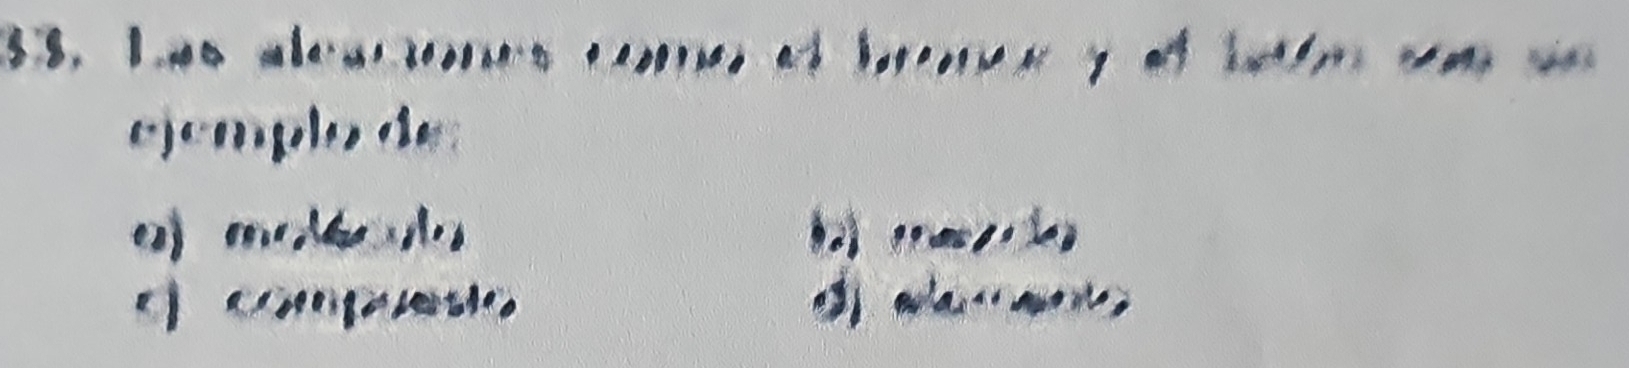 33. Las aleaciones como el bronce y el latón son un
ejemplo de:
a) moléculas b) mezclas
c) compuestos d) elementos